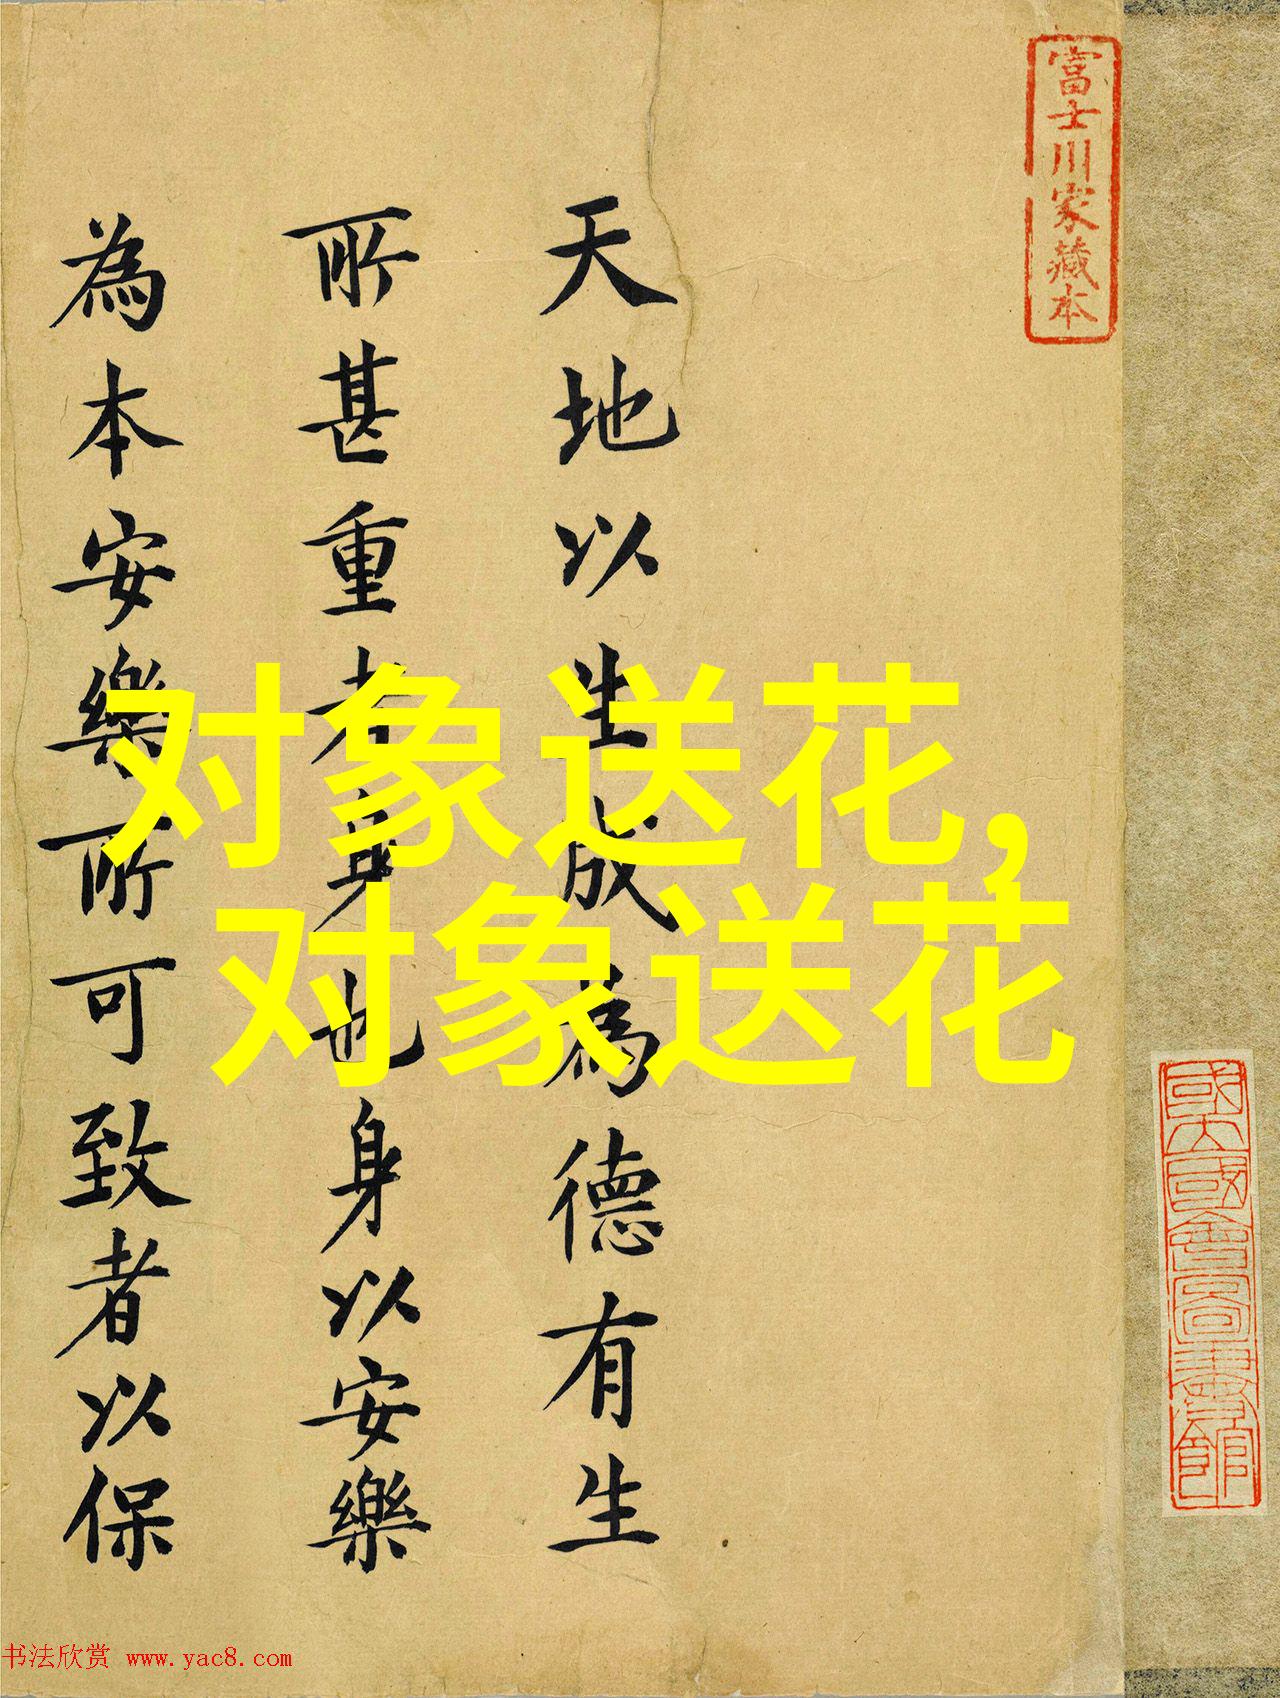 富士川家藏本
天地以生成為德有生
所甚重者身也身以安樂
為本安樂所可致者以保
对象送花，
对象送花
國立國會圖書館
书法欣赏 www.yac8.com